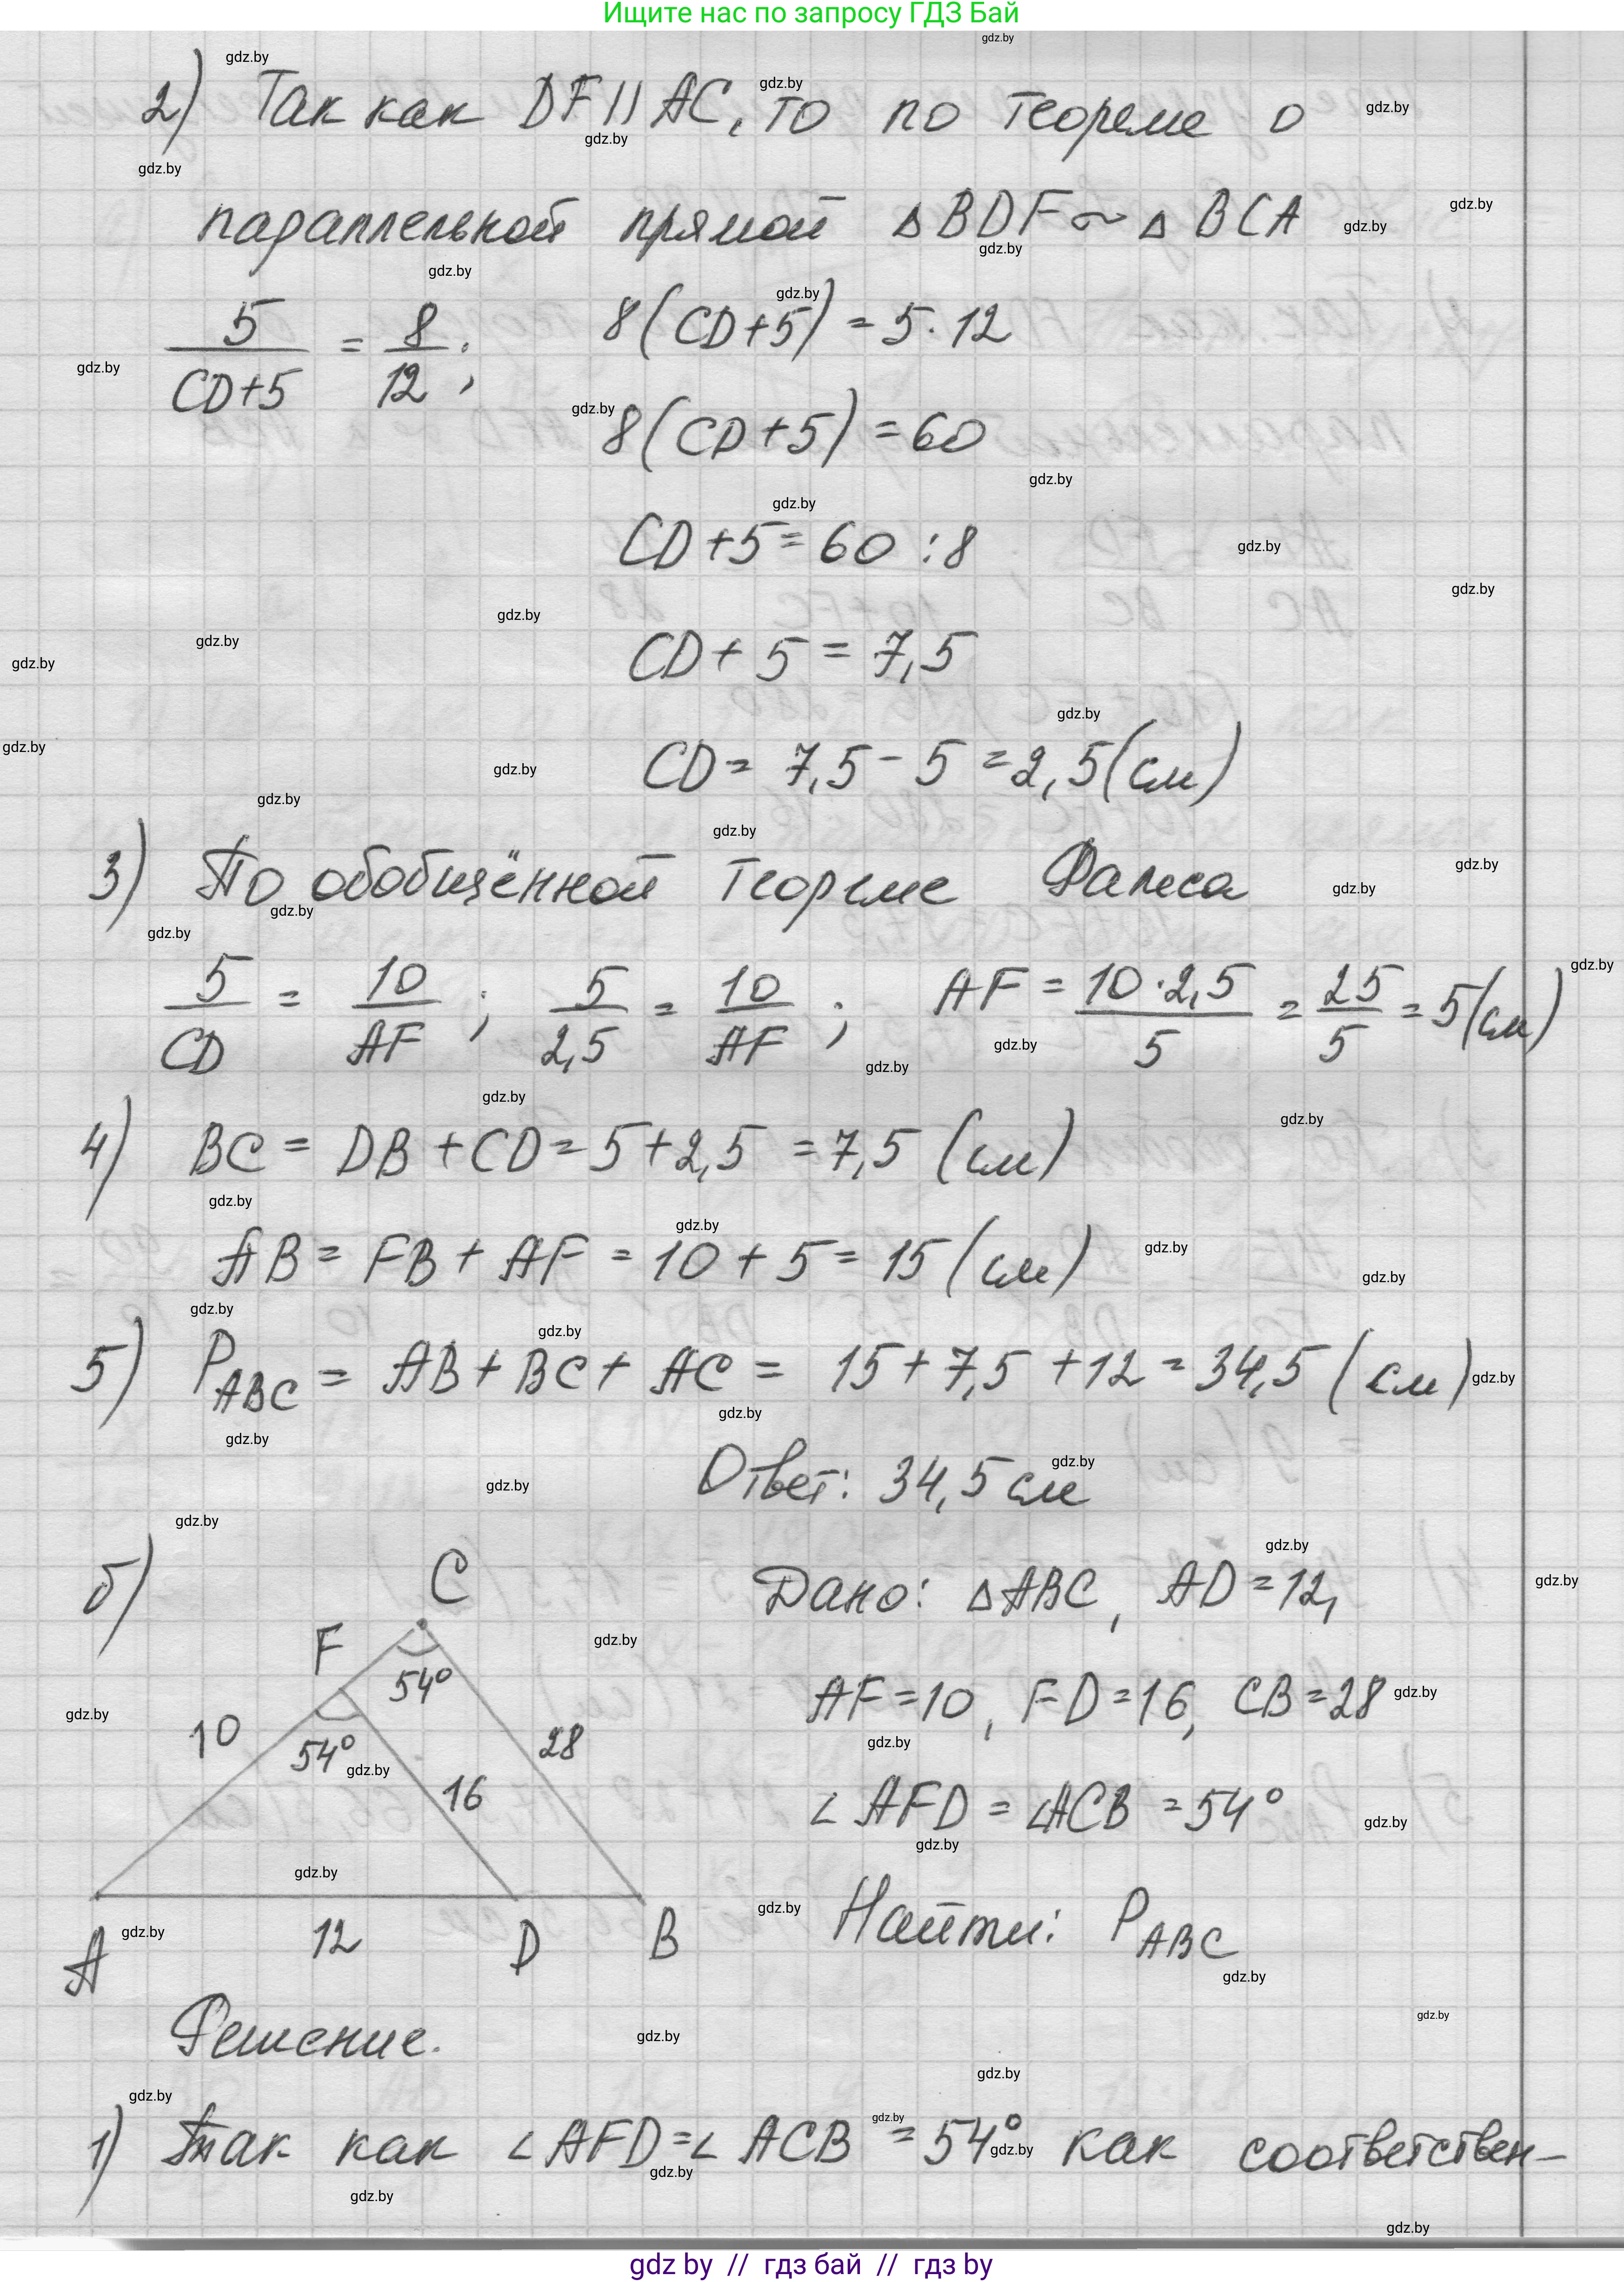 Ищите нас по запросу ГДЗ Бай
2) Так как DF || AC, то по теореме о
параллельной прямой ΔBDF ~ ΔBCA
5/(CD+5) = 8/12; 8(CD+5) = 5·12
8(CD+5) = 60
CD+5 = 60 : 8
CD + 5 = 7,5
CD = 7,5 - 5 = 2,5 (см)
3) По обобщённой теореме Фалеса
5/CD = 10/AF; 5/2,5 = 10/AF; AF = 10·2,5/5 = 25/5 = 5 (см)
4) BC = DB + CD = 5 + 2,5 = 7,5 (см)
AB = FB + AF = 10 + 5 = 15 (см)
5) P ABC = AB + BC + AC = 15 + 7,5 + 12 = 34,5 (см)
Ответ: 34,5 см
б) C
F
54°
10
54°
28
16
A 12 D B
Дано: ΔABC, AD = 12,
AF = 10, FD = 16, CB = 28
∠AFD = ∠ACB = 54°
Найти: P ABC
Решение.
1) Так как ∠AFD = ∠ACB = 54° как соответствен-
gdz by // гдз бай // гдз by